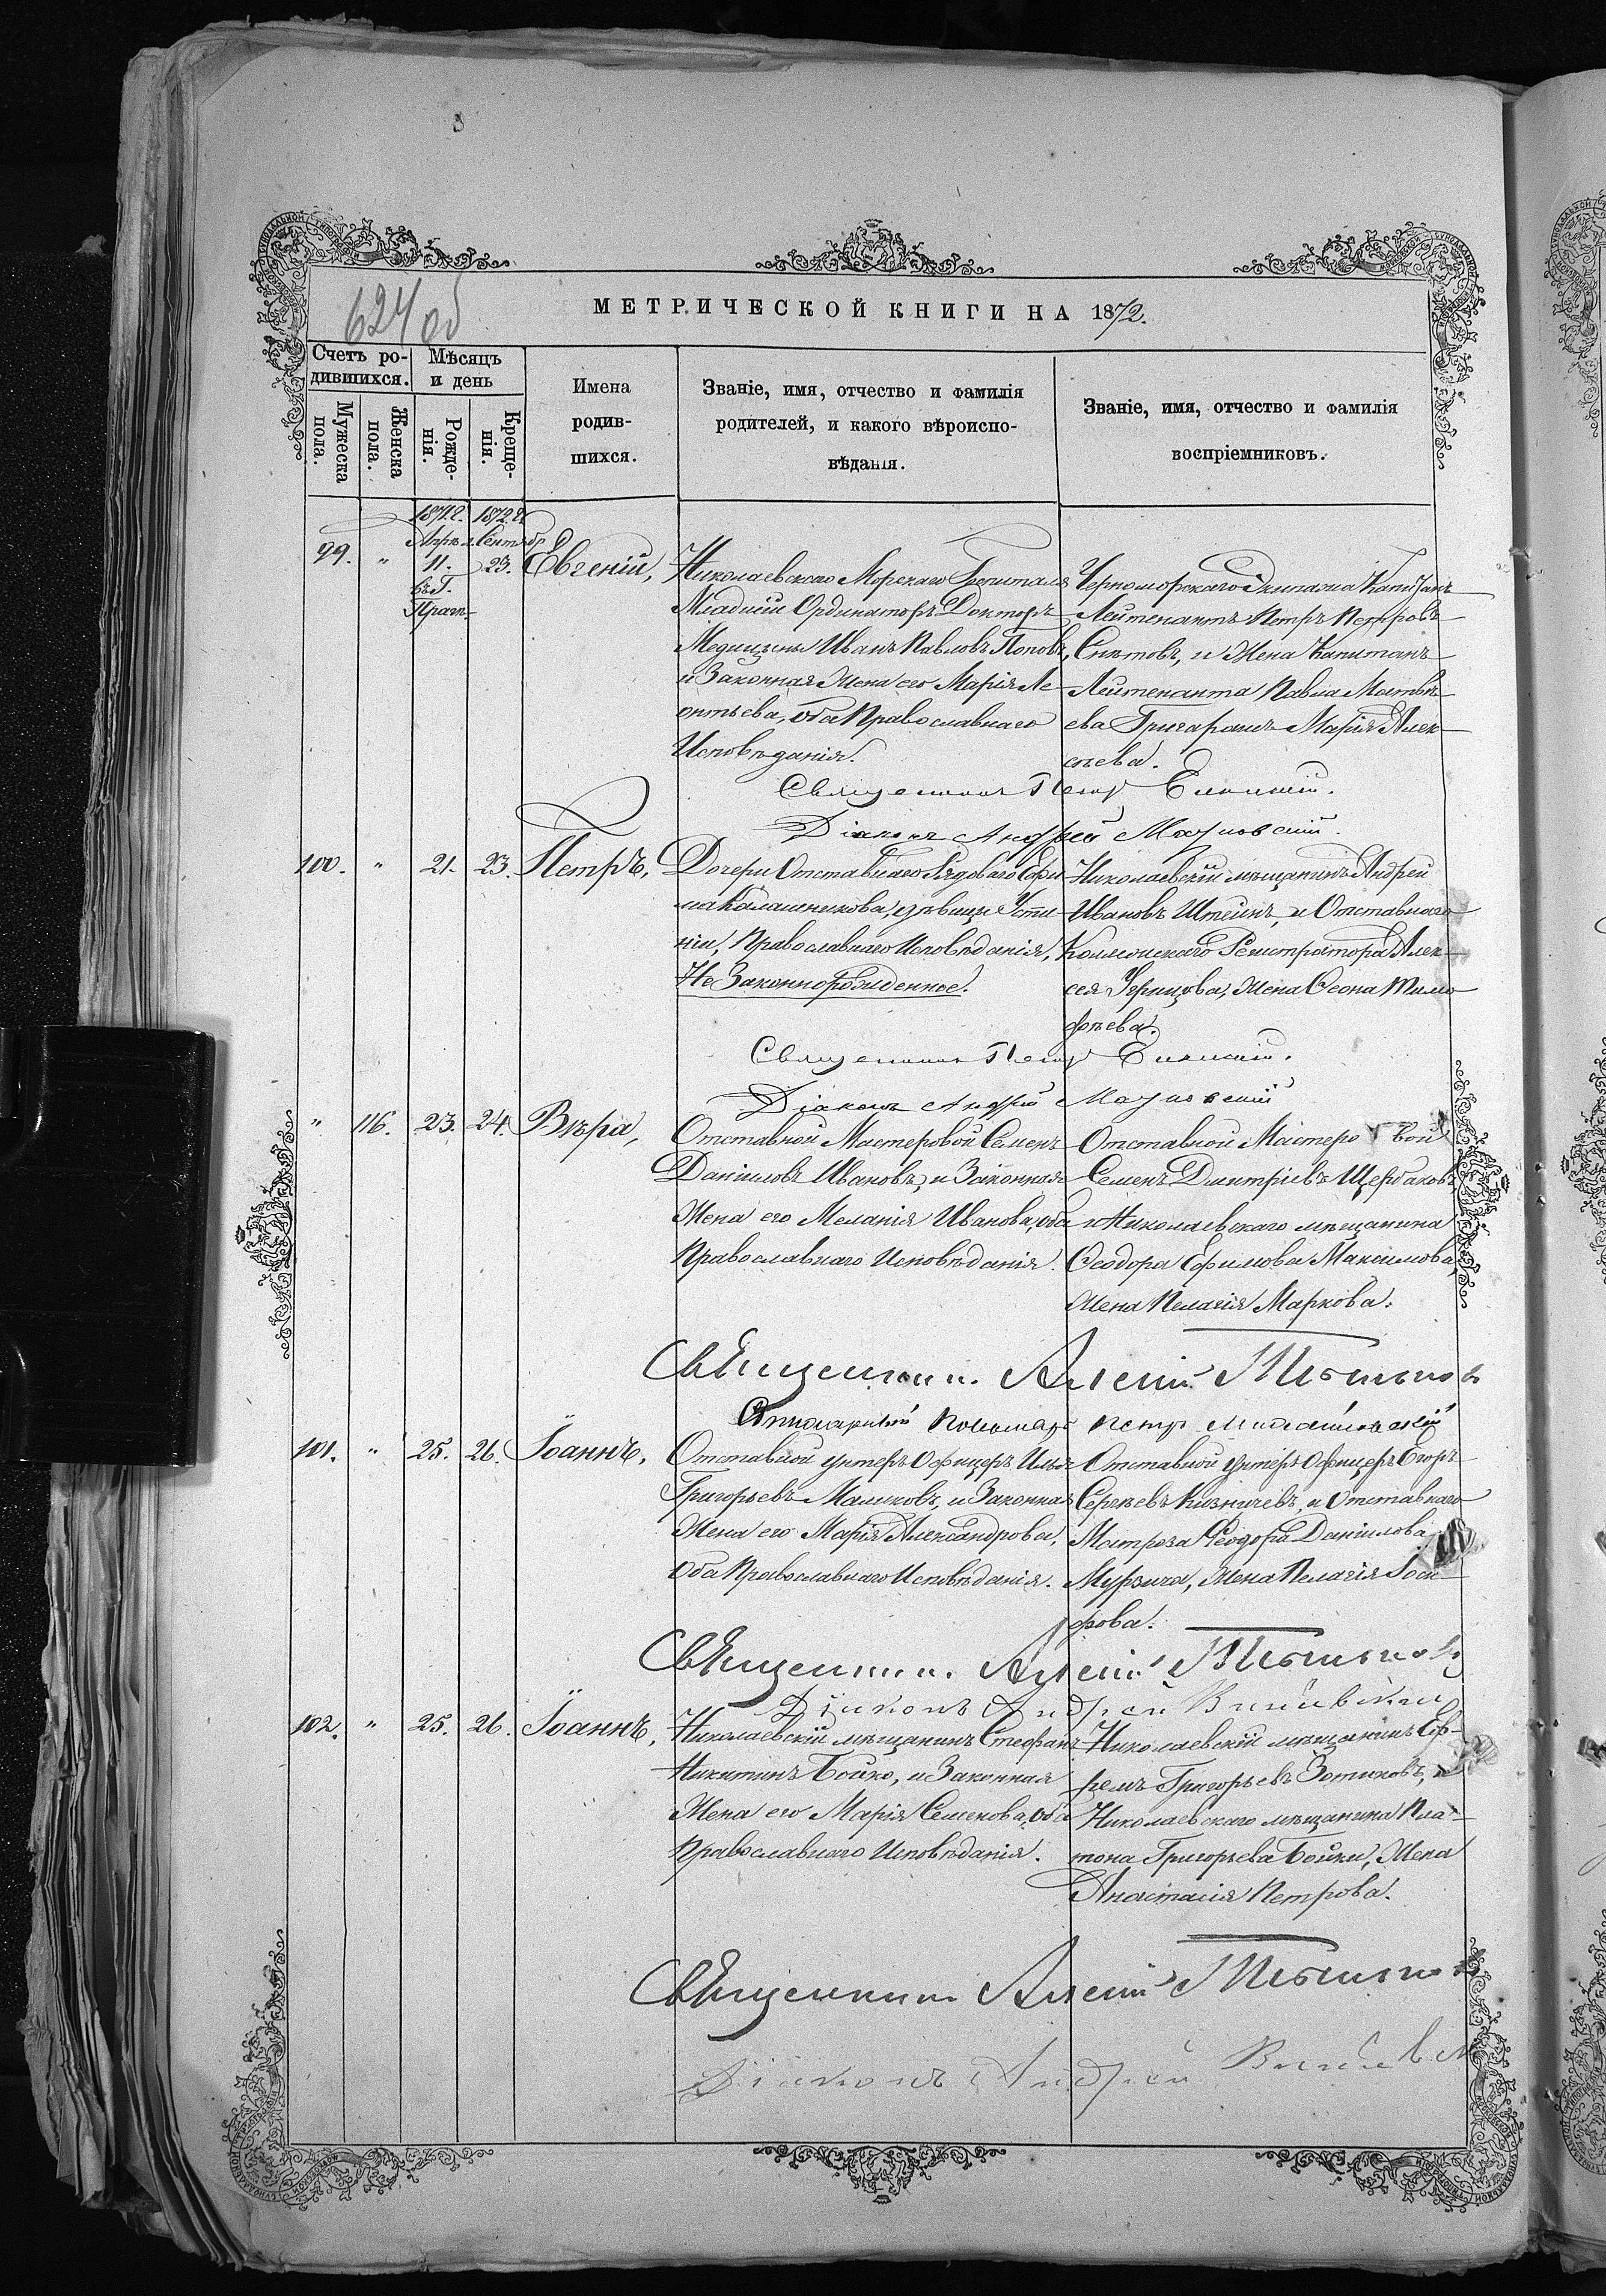 624 об
МЕТРИЧЕСКОЙ КНИГИ НА 1872.
Счетъ ро-
дившихся.
Мѣсяцъ
и день
Мужеска
пола.
Женска
пола.
Рожде-
нія.
Креще-
нія.
Имена
родив-
шихся.
Званіе, имя, отчество и фамилія
родителей, и какого вѣроиспо-
вѣданія.
Званіе, имя, отчество и фамилія
воспріемниковъ.
1871 г. 1872 г.
Апрѣл. Сентябр
99. " 11. 23. Евгеній,
въ Г.
Праг.
Николаевскаго Морскаго Госпиталя
Младшій Ординаторъ Докторъ
Медицины Иванъ Павловъ Поповъ,
и Законная Жена его Марія Ле-
онтьева, оба Православнаго
Исповѣданія.
Черноморскаго Экипажа Капитанъ
Лейтенантъ Петръ Петровъ
Снѣтовъ, и Жена Капитанъ
Лейтенанта Павла Матвѣ-
ева Марія Алек-
сѣева.
Священникъ Петръ
Діаконъ Андрей
100. " 21. 23. Петръ,
Дочери Отставнаго Рядоваго Ефи-
ма Калашникова, дѣвицы Усти-
ніи, Православнаго Исповѣданія,
Не Законнорожденное.
Николаевскій мѣщанинъ Андрей
Ивановъ Штейнъ, и Отставнаго
Коллежскаго Регистратора Алек-
сея Жена Ѳеона Тимо-
фѣева.
Священникъ Петръ
Діаконъ Андрей
" 116. 23. 24. Вѣра,
Отставной Мастеровой Семенъ
Даніиловъ Ивановъ, и Законная
Жена его Меланія Иванова, оба
Православнаго Исповѣданія.
Отставной Мастеровой
Семенъ Дмитріевъ Щербаковъ,
и Николаевскаго мѣщанина
Ѳеодора Ефимова Максимова,
Жена Пелагія Маркова.
Священникъ Алексій
Пономарь Петръ
101. " 25. 26. Іоаннъ,
Отставной унтеръ Офицеръ Илья
Григорьевъ Маликовъ, и Законная
Жена его Марія Александрова,
Оба Православнаго Исповѣданія.
Отставной унтеръ Офицеръ Егоръ
Сергѣевъ и Отставнаго
Матроза Ѳеодора Даніилова
Жена Пелагія Іоси-
фова.
Священникъ Алексій
Діаконъ Андрей
102. " 25. 26. Іоаннъ,
Николаевскій мѣщанинъ Стефанъ
Никитинъ Бойко, и Законная
Жена его Марія Семенова, оба
Православнаго Исповѣданія.
Николаевскій мѣщанинъ Еф-
ремъ Григорьевъ Зотиковъ, и
Николаевскаго мѣщанина Пла-
тона Григорьева Бойки, Жена
Анастасія Петрова.
Священникъ Алексій
Діаконъ Андрей